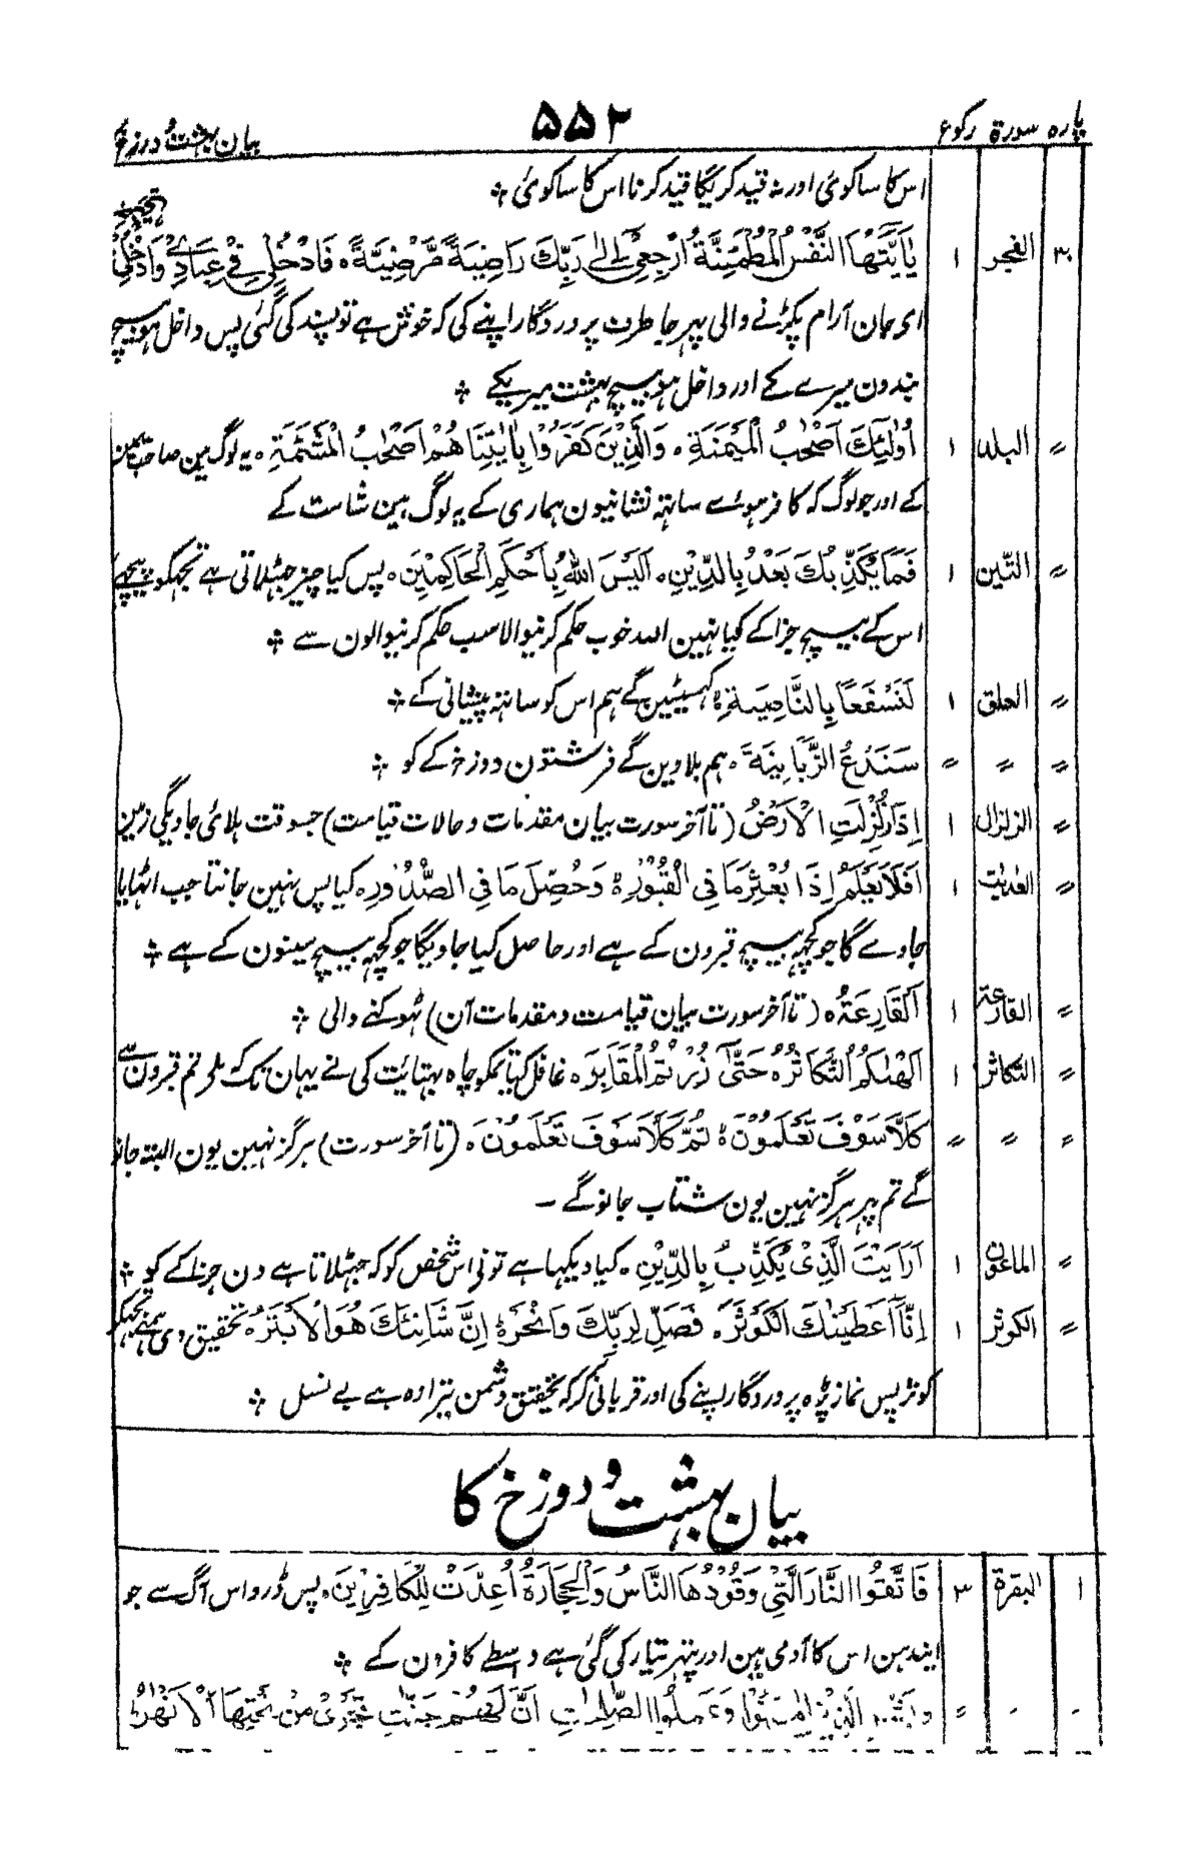 پارہ سورۃ رکوع ۵۵۲ بیان بہشت و دوزخ
اس کا سا کوئی اور نہ قید کریگا قید کرنا اس کا سا کوئی ؞
۳۰ الفجر ۱ يٰۤاَيَّتُهَا النَّفْسُ الْمُطْمَئِنَّةُ ارْجِعِيْۤ اِلٰى رَبِّكِ رَاضِيَةً مَّرْضِيَّةً ه فَادْخُلِيْ فِيْ عِبَادِيْ وَادْخُلِيْ جنتی
ای جان آرام پکڑنے والی پہر جا طرف پروردگار اپنے کی کہ خوش ہے تو پسند کی گئی پس داخل ہو بیچ
بندون میرے کے اور داخل ہو بیچ بہشت میریکے ؞
〃 البلد ۱ اُولٰٓئِكَ اَصْحٰبُ الْمَيْمَنَةِ ه وَالَّذِيْنَ كَفَرُوْا بِاٰيٰتِنَا هُمْ اَصْحٰبُ الْمَشْئَمَةِ ه یہ لوگ ہین صاحب یمین
کے اور جو لوگ کہ کافر ہوئے ساتہہ نشانیون ہماری کے یہ لوگ ہین شامت کے
〃 التّین ۱ فَمَا يُكَذِّبُكَ بَعْدُ بِالدِّيْنِ ه اَلَيْسَ اللّٰهُ بِاَحْكَمِ الْحَاكِمِيْنَ ه پس کیا چیز جھٹلاتی ہے تجہکو پیچہے
اس کے بیچ جزا کے کیا نہین اللہ خوب حکم کرنیوالا سب حکم کرنیوالون سے ؞
〃 العلق ۱ لَنَسْفَعًا بِالنَّاصِيَةِ ه گہسیٹین گے ہم اس کو ساتہہ پیشانی کے ؞
〃 〃 〃 سَنَدْعُ الزَّبَانِيَةَ ه ہم بلاوین گے فرشتون دوزخ کے کو ؞
〃 الزلزال ۱ اِذَا زُلْزِلَتِ الْاَرْضُ (تا آخر سورت بیان مقدمات و حالات قیامت) جسوقت ہلائی جاویگی زمین
〃 العٰدیٰت ۱ اَفَلَا يَعْلَمُ اِذَا بُعْثِرَ مَا فِي الْقُبُوْرِ ه وَحُصِّلَ مَا فِي الصُّدُوْرِ ه کیا پس نہین جانتا جب اٹہایا
جاوے گا جو کچہہ بیچ قبرون کے ہے اور حاصل کیا جاویگا جو کچہہ بیچ سینون کے ہے ؞
〃 القارعة ۱ اَلْقَارِعَةُ ه (تا آخر سورت بیان قیامت و مقدمات آن) ٹہوکنے والی ؞
〃 التکاثر ۱ اَلْهٰىكُمُ التَّكَاثُرُ ه حَتّٰى زُرْتُمُ الْمَقَابِرَ ه غافل کیا تمکو چاہ بہتائیت کی نے یہان تک کہ ملے تم قبرون سے
〃 〃 〃 كَلَّا سَوْفَ تَعْلَمُوْنَ ه ثُمَّ كَلَّا سَوْفَ تَعْلَمُوْنَ ه (تا آخر سورت) ہرگز نہین یون البتہ جانو
گے تم پہر ہرگز نہین یون شتاب جانوگے –
〃 الماعون ۱ اَرَاَيْتَ الَّذِيْ يُكَذِّبُ بِالدِّيْنِ ه کیا دیکہا ہے تونی اس شخص کو کہ جہٹلاتا ہے دن جزا کے کو ؞
〃 الکوثر ۱ اِنَّاۤ اَعْطَيْنٰكَ الْكَوْثَرَ ه فَصَلِّ لِرَبِّكَ وَانْحَرْ ه اِنَّ شَانِئَكَ هُوَ الْاَبْتَرُ ه تحقیق دی ہمنے تجہکو
کوثر پس نماز پڑہ پروردگار اپنے کی اور قربانی کر کہ تحقیق دشمن تیرا وہ ہے بے نسل ؞
بیان بہشت و دوزخ کا
۱ البقرة ۳ فَاتَّقُوا النَّارَ الَّتِيْ وَقُوْدُهَا النَّاسُ وَالْحِجَارَةُ اُعِدَّتْ لِلْكَافِرِيْنَ ه پس ڈرو اس آگ سے جو
ایندہن اس کا آدمی ہین اور پتہر تیار کی گئی ہے واسطے کافرون کے ؞
〃 وَبَشِّرِ الَّذِيْنَ اٰمَنُوْا وَعَمِلُوا الصّٰلِحٰتِ اَنَّ لَهُمْ جَنّٰتٍ تَجْرِيْ مِنْ تَحْتِهَا الْاَنْهٰرُ